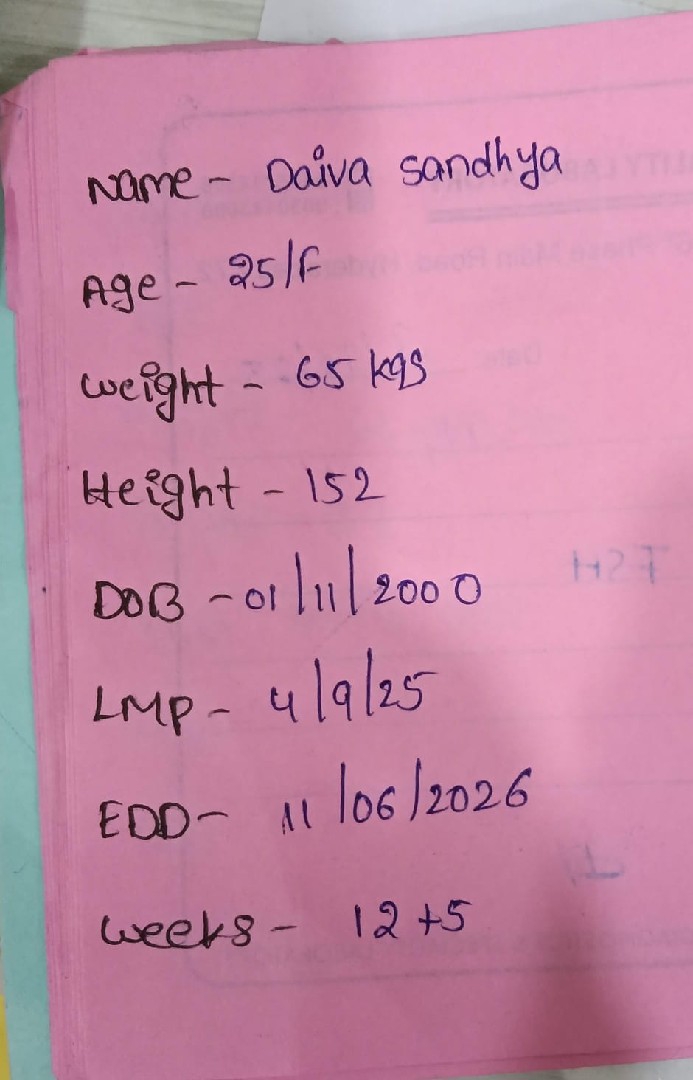 Name - Daiva sandhya
Age - 25/F
weight - 65 kgs
Height - 152
DOB - 01/11/2000
LMP - 4/9/25
EDD - 11/06/2026
weeks - 12+5